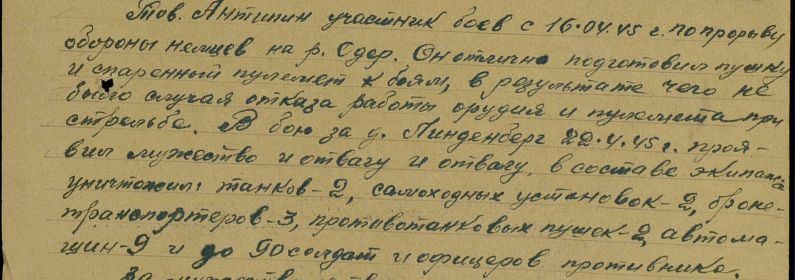 Тов. Антипин участник боев с 16.04.45 г. по прорыву
обороны немцев на р. Одер. Он отлично подготовил пушку
и спаренный пулемет к боям, в результате чего не
было случая отказа работы орудия и пулемета при
стрельбе. В бою за д. Линденберг 22.4.45 г. проя-
вил мужество и отвагу и отвагу. в составе экипажа
уничтожил: танков-2, самоходных установок-2, броне-
транспортеров-3, противотанковых пушек-2, автома-
шин-9 и до 90 солдат и офицеров противника.
За мужество